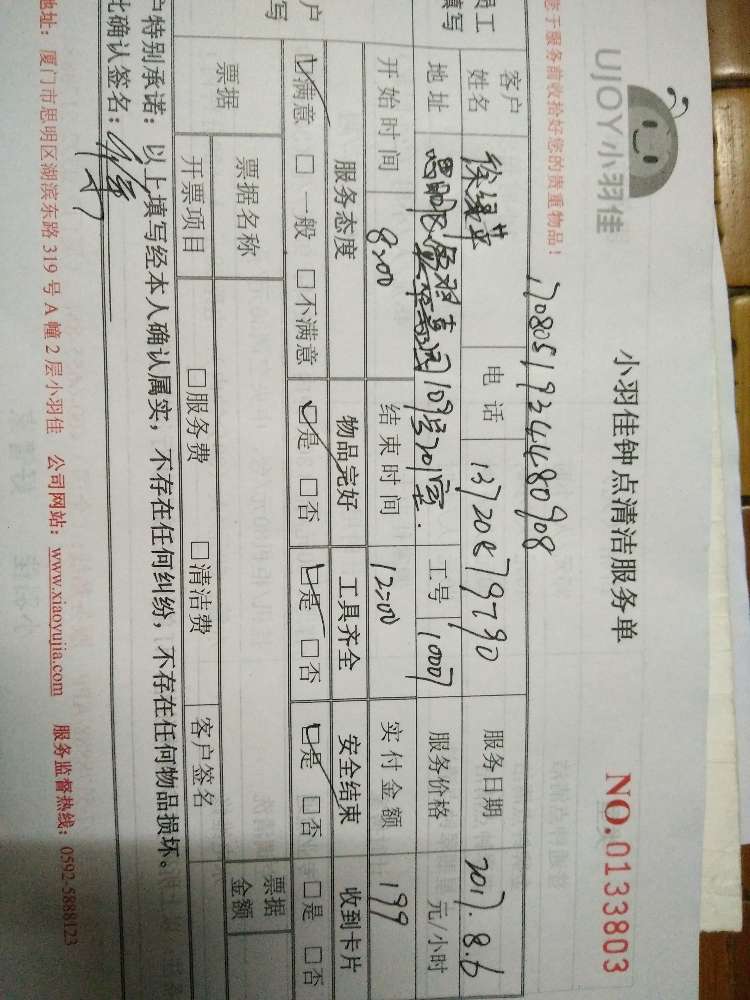 UJOY小羽佳
小羽佳钟点清洁服务单
NO.0133803
您于服务前收拾好您的贵重物品!
17080519244480908
员工
填写
客户
姓名
徐
电话
服务日期
2017.8.6
地址
思明区 109号201室.
工号
10007
服务价格
元/小时
开始时间
8:00
结束时间
12:00
实付金额
199
户
写
服务态度
物品完好
工具齐全
安全结束
收到卡片
☑满意 □一般 □不满意
☑是 □否
☑是 □否
☑是 □否
□是 □否
票据
票据名称
票据
金额
开票项目
□服务费 □清洁费
客户签名
户特别承诺:以上填写经本人确认属实,不存在任何纠纷,不存在任何物品损坏。
此确认签名:
地址:厦门市思明区湖滨东路319号A幢2层小羽佳 公司网站:www.xiaoyujia.com 服务监督热线:0592-5888123